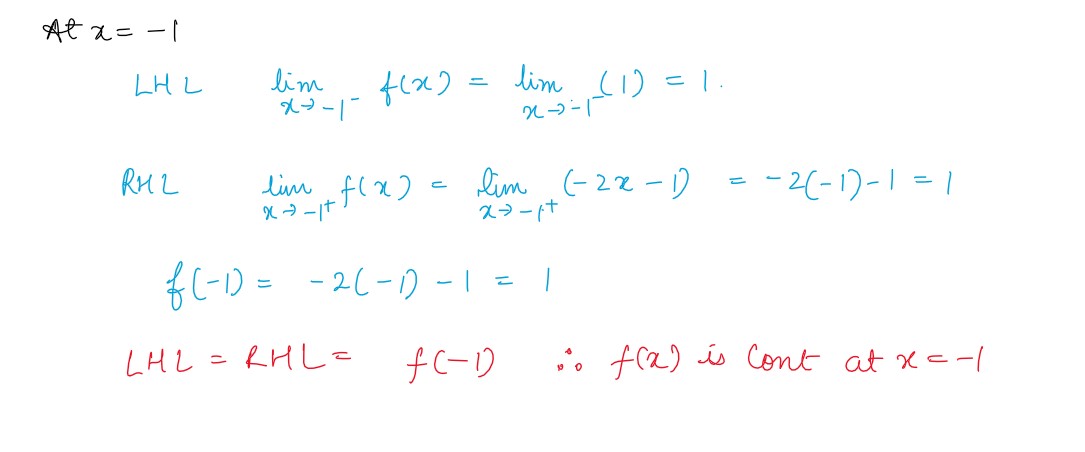 At x = -1
LHL lim x→-1⁻ f(x) = lim x→-1⁻ (1) = 1.
RHL lim x→-1⁺ f(x) = lim x→-1⁺ (-2x - 1) = -2(-1)-1 = 1
f(-1) = -2(-1) - 1 = 1
LHL = RHL = f(-1) ∴ f(x) is Cont at x = -1